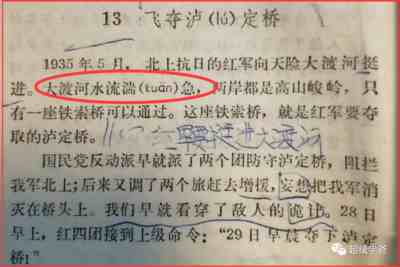 13 飞夺泸(lú)定桥
1935年5月，北上抗日的红军向天险大渡河挺
进。大渡河水流湍(tuān)急，两岸都是高山峻岭，只
有一座铁索桥可以通过。这座铁索桥，就是红军要夺
取的泸定桥。
国民党反动派早就派了两个团防守泸定桥，阻拦
我军北上；后来又调了两个旅赶去增援，妄想把我军消
灭在桥头上。我们早就看穿了敌人的诡计。28日
早晨，红四团接到上级命令：“29日早晨夺下泸定
桥！”
超级学爸